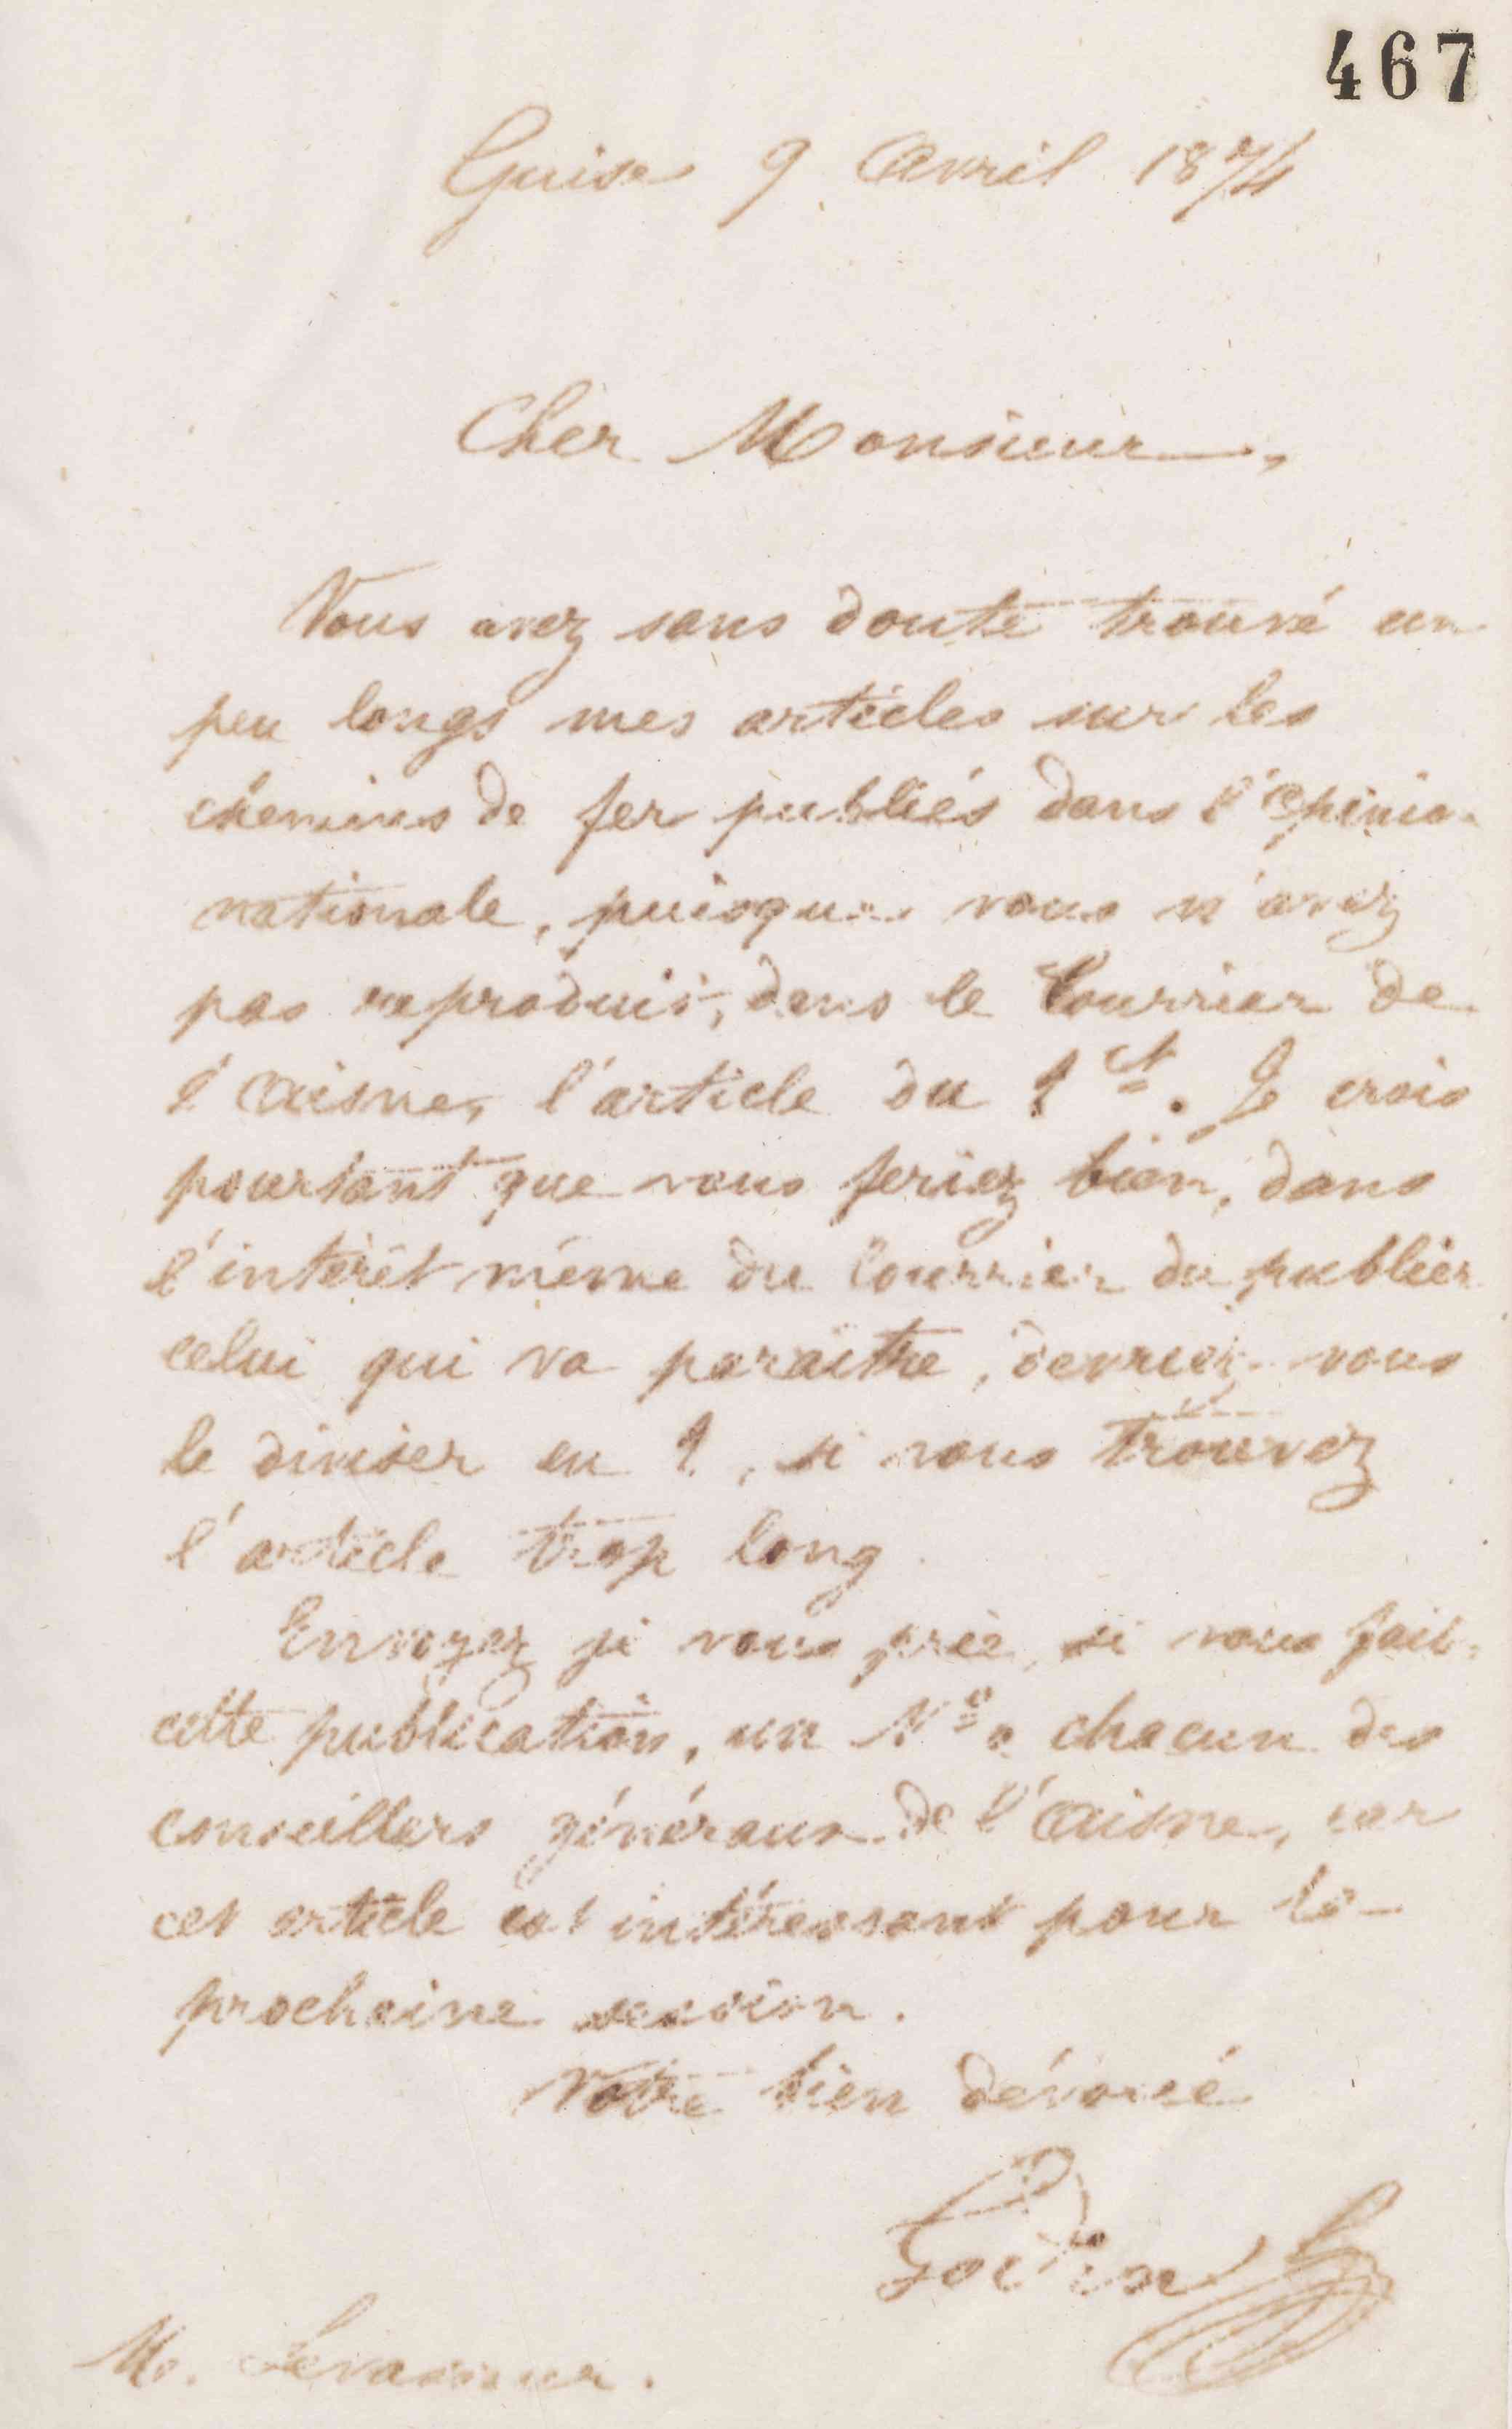 467
Guise 9 Avril 1874
Cher Monsieur,
Vous avez sans doute trouvé un
peu longs mes articles sur les
chemins de fer publiés dans l'Opinion
nationale, puisque vous n'avez
pas reproduit, dans le Courrier de
l'Aisne, l'article du 1er. Je crois
pourtant que vous feriez bien, dans
l'intérêt même du Courrier de publier
celui qui va paraître, devriez-vous
le diviser en 2, si vous trouvez
l'article trop long.
Envoyez je vous prie, si vous fait
cette publication, un No à chacun des
conseillers généraux de l'Aisne, car
cet article est intéressant pour la
prochaine session.
Votre bien dévoué
Godin
M. Levasseur.